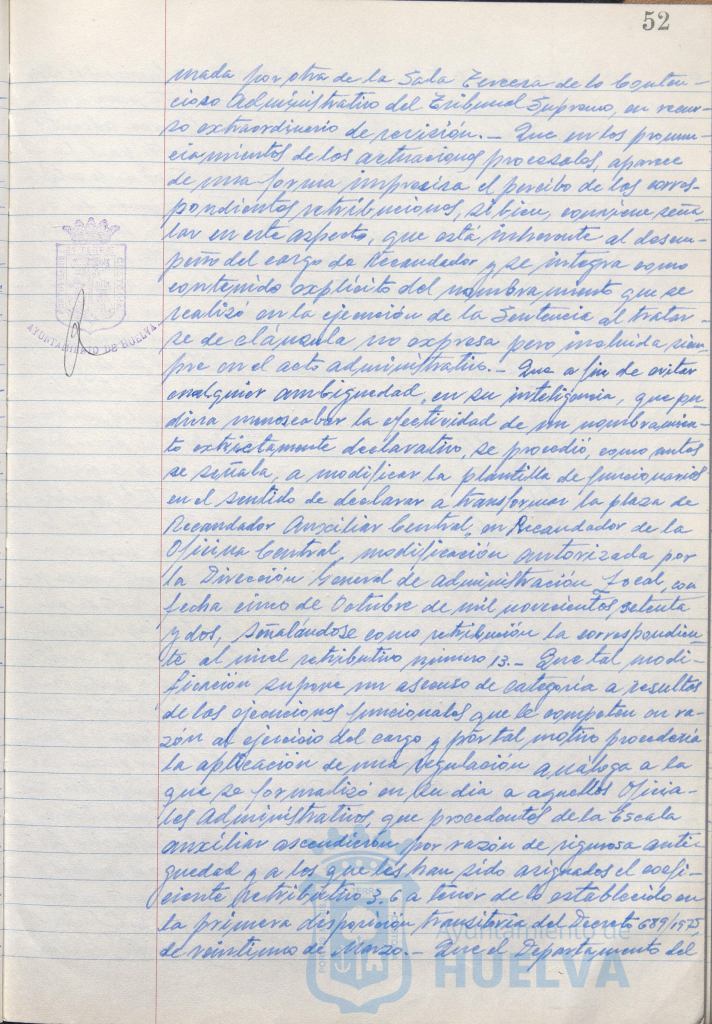 52
mada por otra de la Sala Tercera de lo Conten-
cioso Administrativo del Tribunal Supremo, en recur-
so extraordinario de revisión. - Que en los pronun-
ciamientos de las actuaciones procesales, aparece
de una forma imprecisa el percibo de las corres-
pondientes retribuciones, si bien, conviene seña-
lar en este aspecto, que está inherente al desem-
peño del cargo de Recaudador y se integra como
contenido explícito del nombramiento que se
realizó en la ejecución de la Sentencia al tratar-
se de cláusula no expresa pero incluida siem-
pre en el acto administrativo. - Que a fin de evitar
cualquier ambiguedad, en su inteligencia, que pu-
diera menoscabar la efectividad de un nombramien-
to extrictamente declarativo, se procedió, como antes
se señala, a modificar la plantilla de funcionarios
en el sentido de declarar a transformar la plaza de
Recaudador Auxiliar Central, en Recaudador de la
Oficina Central, modificación autorizada por
la Dirección General de Administración Local, con
fecha cinco de Octubre de mil novecientos setenta
y dos, señalándose como retribución la correspondien-
te al nivel retributivo número 13. - Que tal modi-
ficación supone un ascenso de categoría a resultas
de las funcionales que le competen en ra-
zón al ejercicio del cargo y por tal motivo procedería
la aplicación de una regulación análoga a la
que se formalizó en su dia a aquellos Oficia-
les Administrativos, que procedentes de la Escala
auxiliar ascendieron por razón de rigurosa anti-
guedad y a los que les han sido asignados el coefi-
ciente retributivo 3,6 a tenor de lo establecido en
la primera disposición transitoria del Decreto 689/1975,
de veintiuno de Marzo. - Que el Departamento del
AYUNTAMIENTO DE HUELVA
Ayuntamiento de
HUELVA